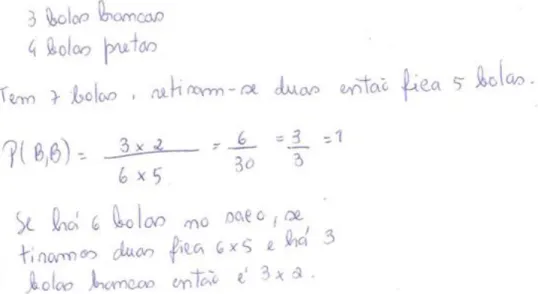 3 bolas brancas
4 bolas pretas
Tem 7 bolas, retiram-se duas então fica 5 bolas.
P(B,B) = 3 x 2 / 6 x 5 = 6/30 = 3/3 = 1
Se há 6 bolas no saco, se
tiramos duas fica 6 x 5 e há 3
bolas brancas então é 3 x 2.